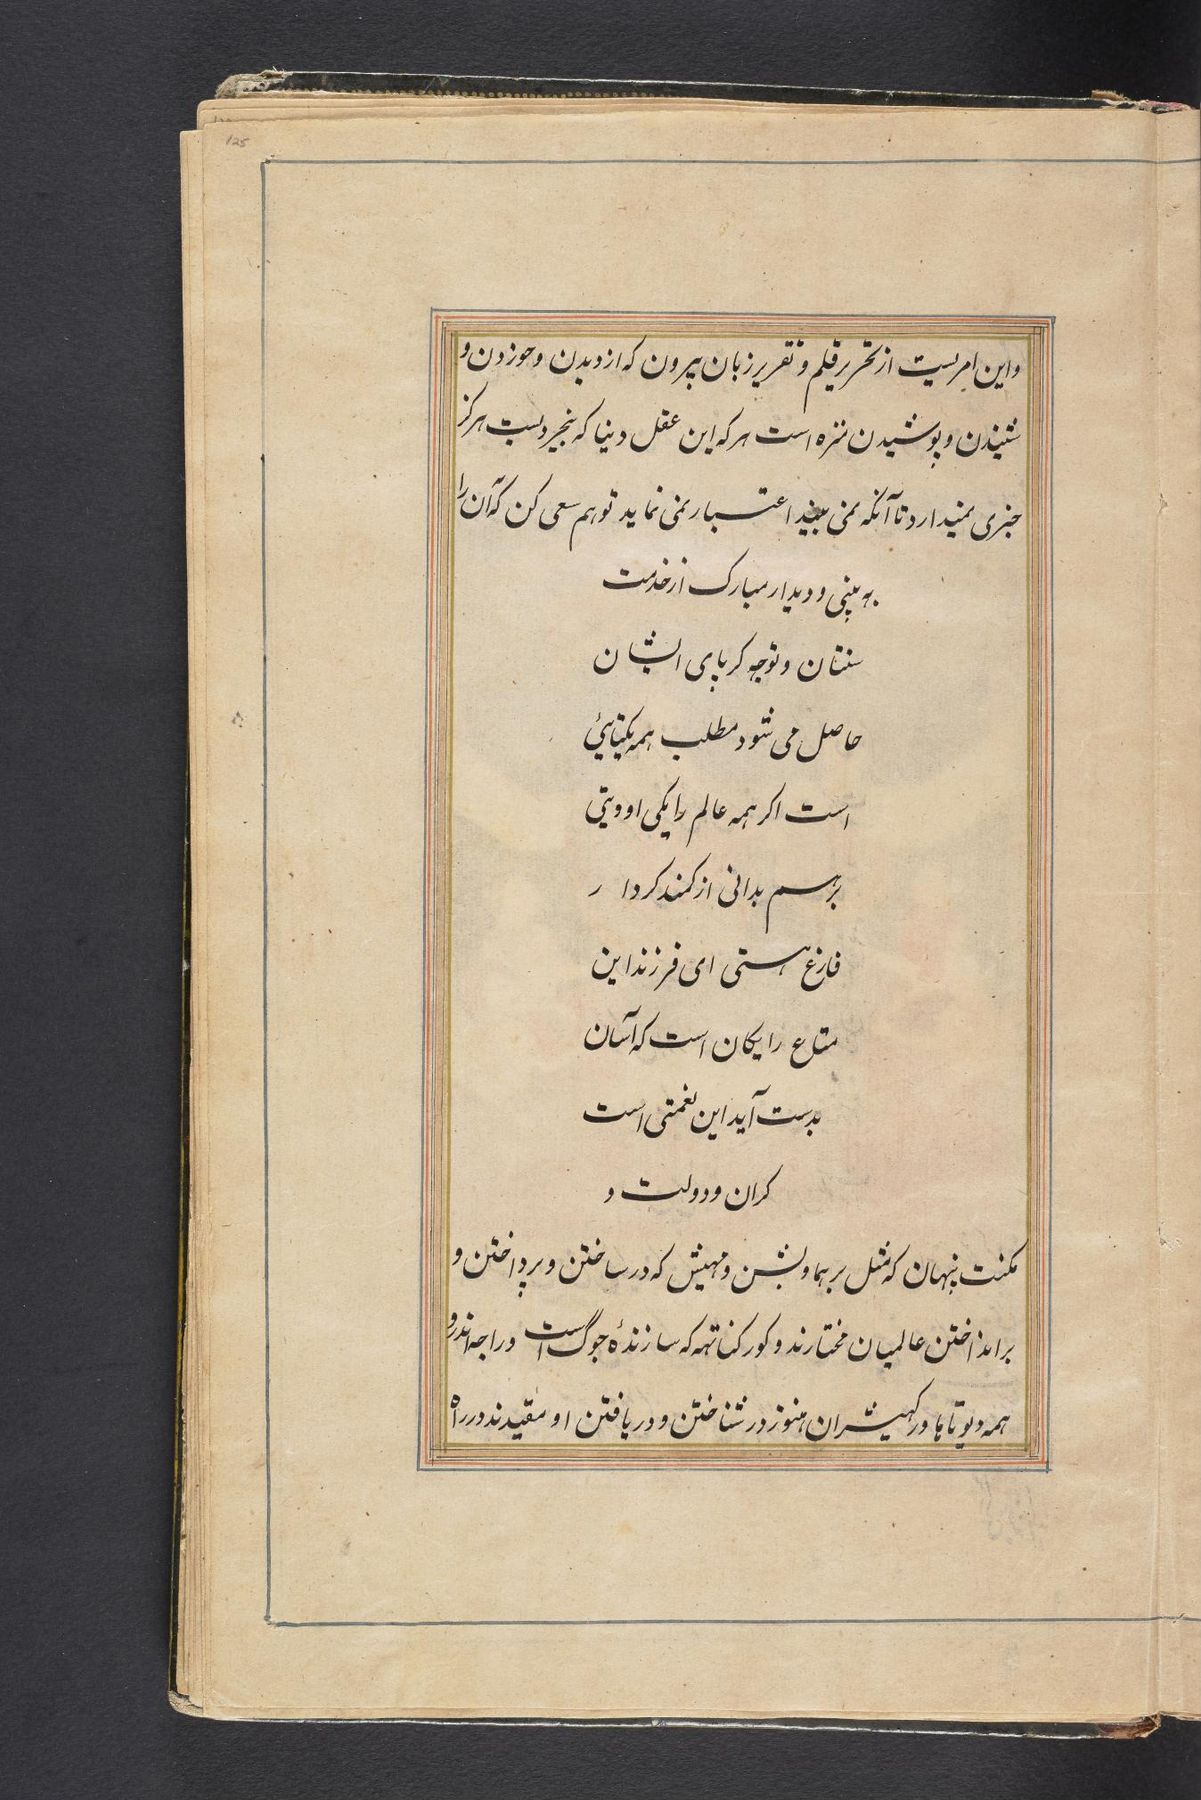 125
و این امریست از تحریر قلم و تقریر زبان بیرون که از دیدن و خوردن و
شنیدن و پوشیدن منزه است هر که این عقل دینا که بنجیر دست هرکز
خبری نمیدارد تا آنکه نمی بیند اعتبار نمی نماید تو هم سعی کن که آن را
به بینی و دیدار مبارک از خدمت
سنتان و توجه کرپای ایشان
حاصل می شود مطلب همه یکتایئ
است اکر همه عالم را یکی او ویتی
برهم بدانی از کمند کردار
فارغ هستی ای فرزند این
متاع رایکان است که آسان
بدست آید این نعمتی است
کران و دولت و
مکنت پنهان که مثل برهما و بشن و مهیش که در ساختن و پرداختن و
براندا ختن عالمیان مختارند و کورکناتهه که سازندهٔ جوگ است و راجه اندر و
همه دیوتا ها و رکهیشران هنوز در شناختن و دریافتن او مقیدند در راه